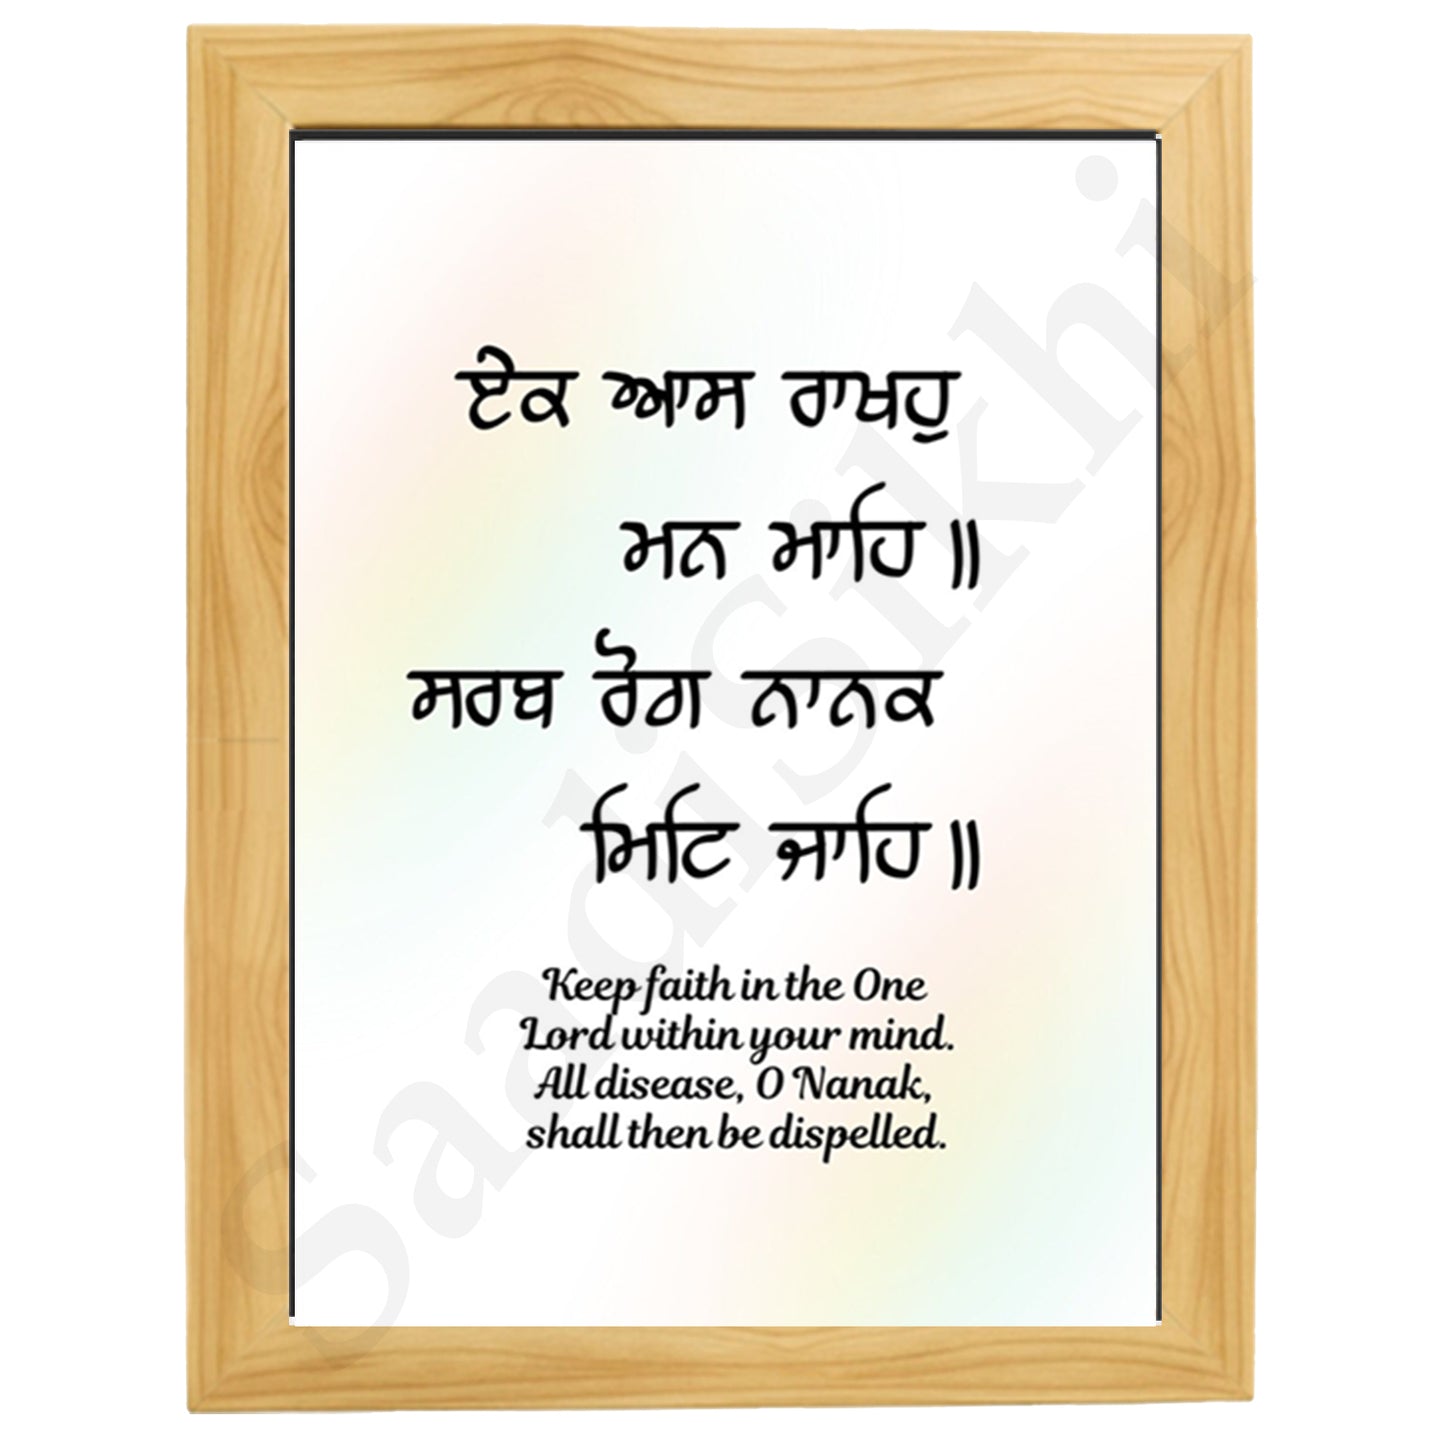 ਏਕ ਆਸ ਰਾਖਹੁ
ਮਨ ਮਾਹਿ ॥
ਸਰਬ ਰੋਗ ਨਾਨਕ
ਮਿਟਿ ਜਾਹਿ ॥
Keep faith in the One
Lord within your mind.
All disease, O Nanak,
shall then be dispelled.
SaadiSikhi